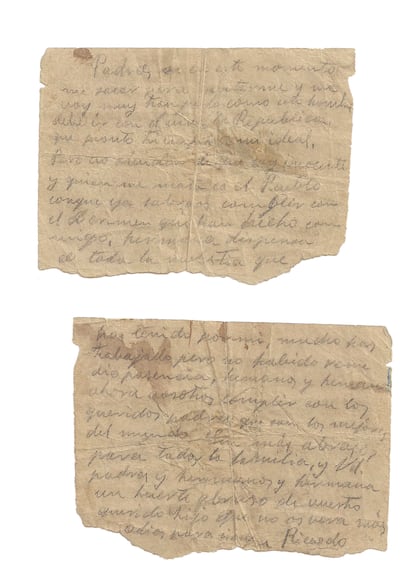 Padres, en este momento
me sacan para matarme y me
voy muy tranquilo como un hombre
debe ir con el viva la Republica
que pronto triunfara mi ideal,
Pero no olvidar de que soy inocente
y quien me mata es el Pueblo
conque ya sabeis cumplir con
el crimen que han hecho con
migo, hermana
de toda la nuestra que
has tenido por mi, mucho has
trabajado pero no habido reme
dio paciencia, hermanos y hermana
ahora vosotros cumplir con los
queridos padres que son los mejores
del mundo. Sin más abrazos
para toda la familia, y Vd.
padres y hermanos y hermana
un fuerte abrazo de vuestro
querido hijo que no os vera más
adios para siempre Ricardo